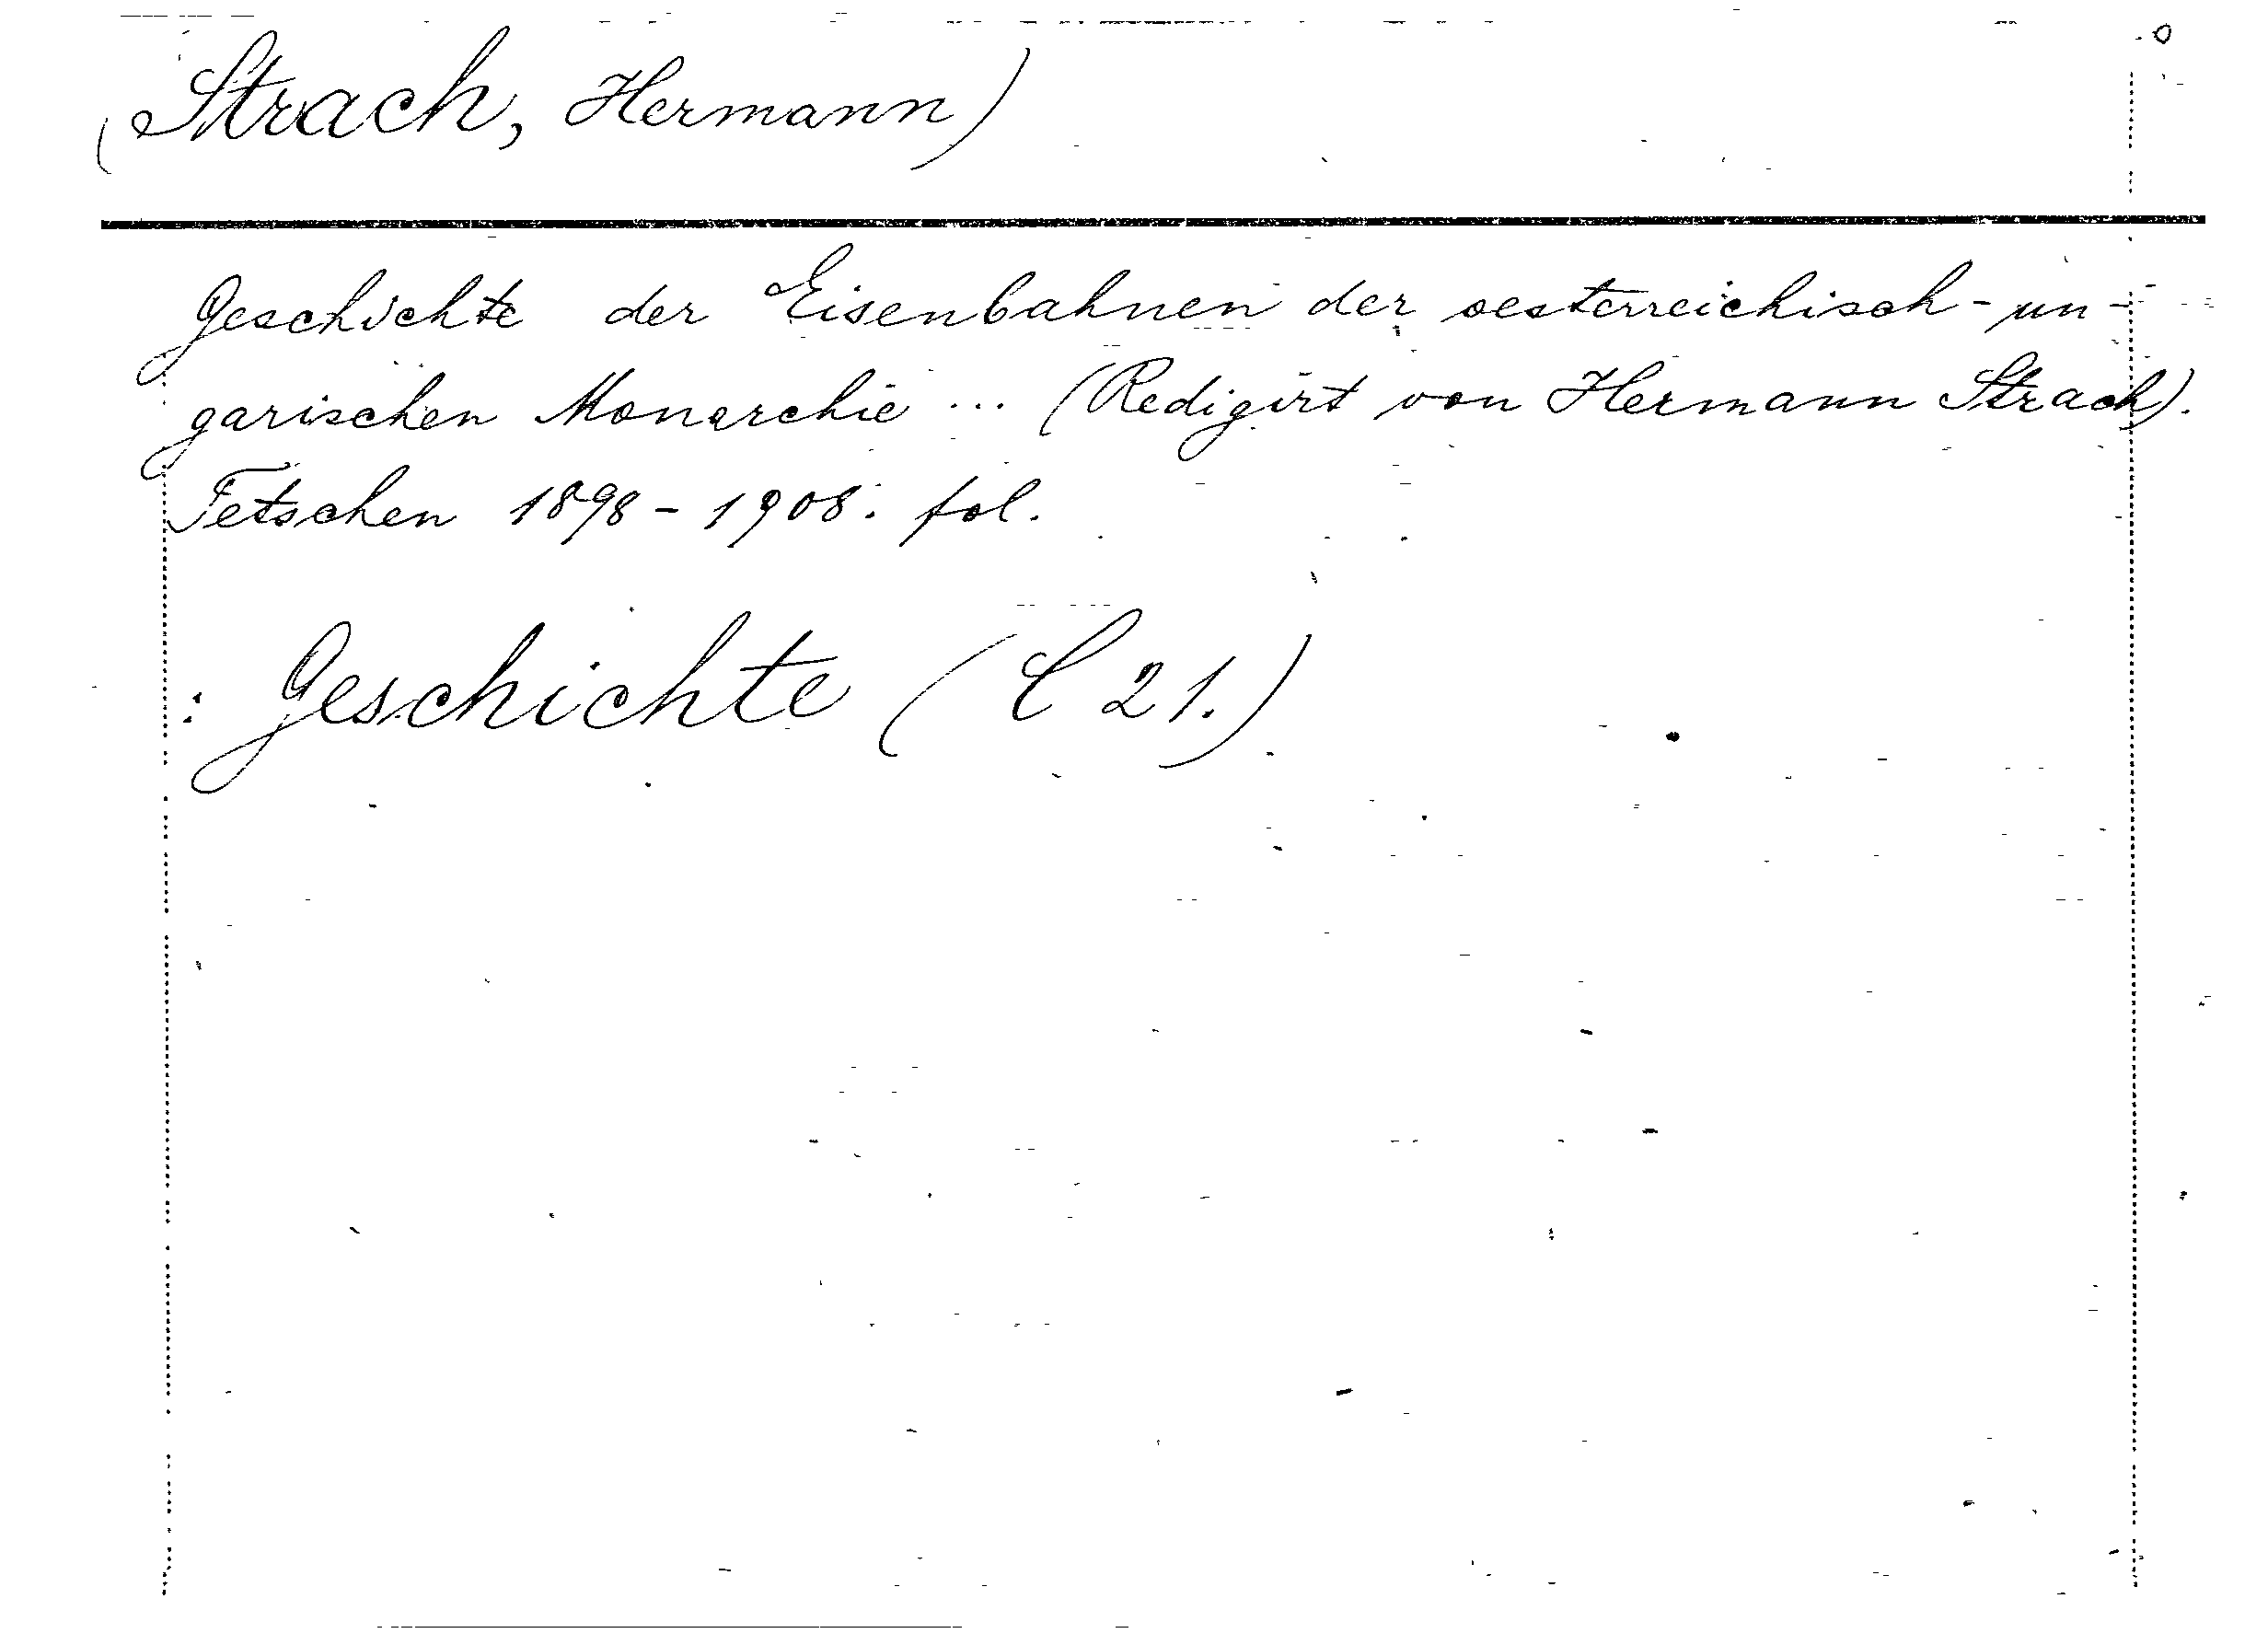 (Strach, Hermann)
Geschichte der Eisenbahnen der oesterreichisch-un-
garischen Monarchie ... (Redigirt von Hermann Strach).
Tetschen 1898-1908. fol.
: Geschichte (C 21.)